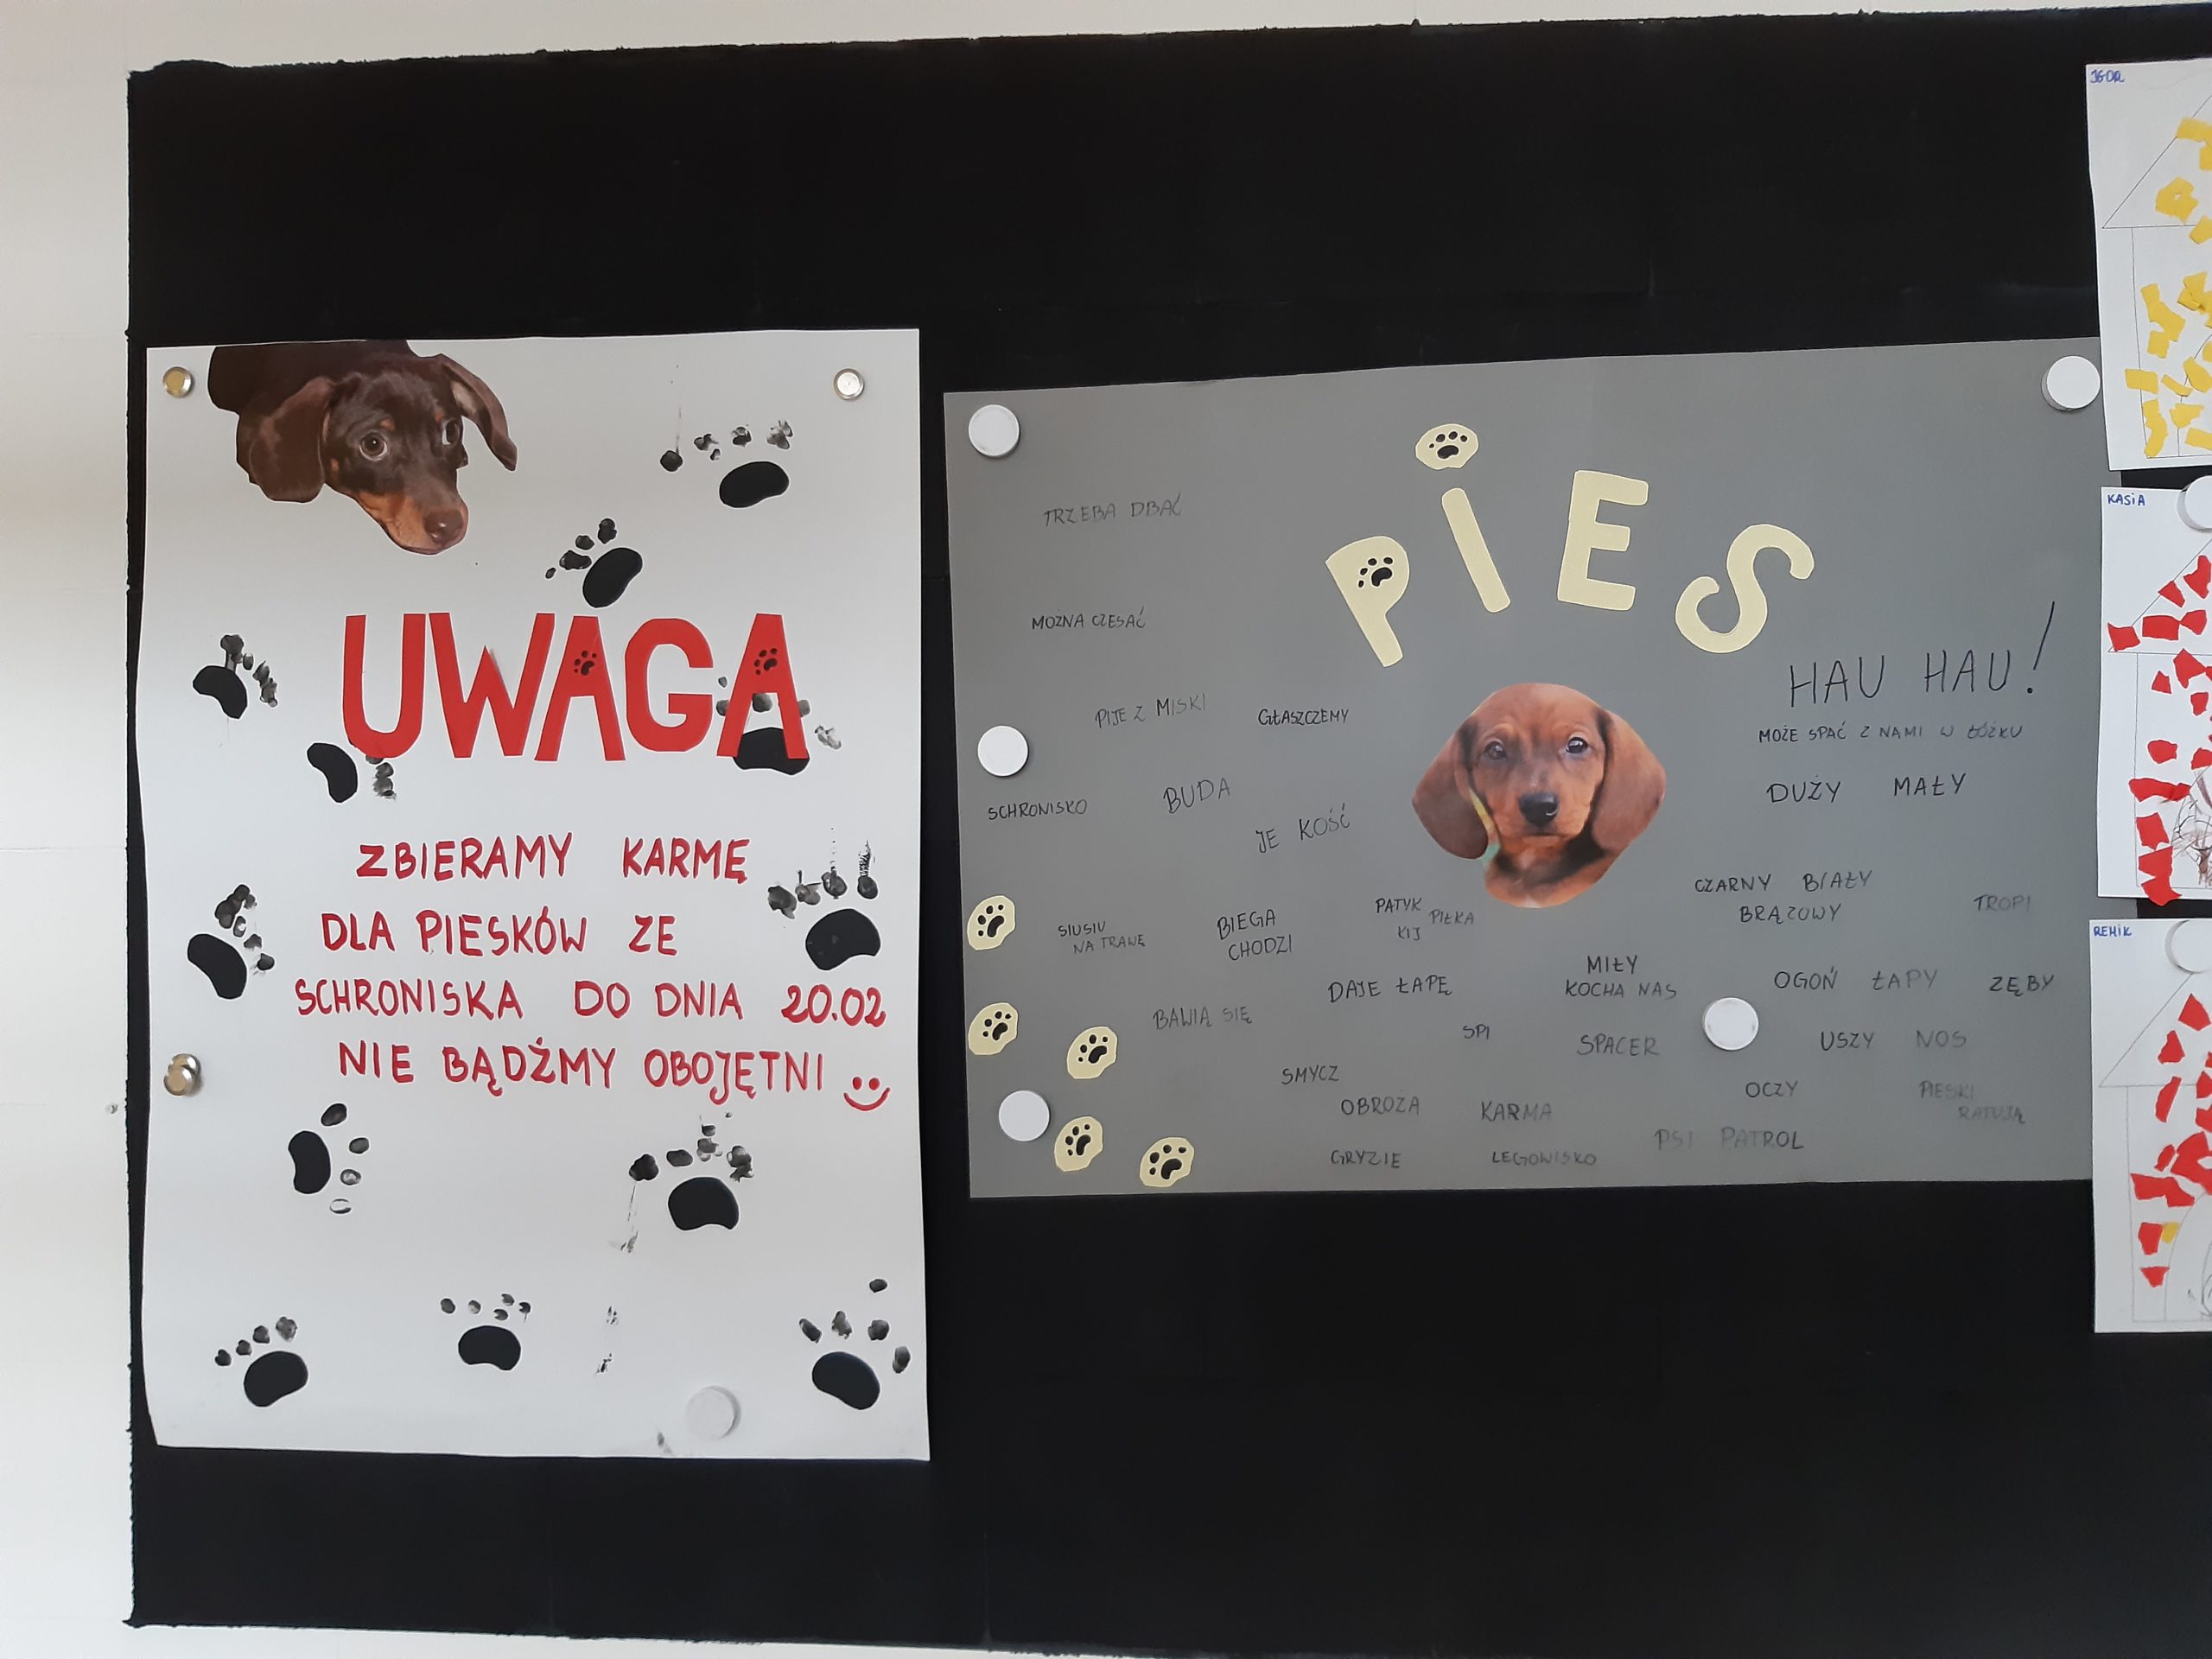 UWAGA
ZBIERAMY KARMĘ
DLA PIESKÓW ZE
SCHRONISKA DO DNIA 20.02
NIE BĄDŹMY OBOJĘTNI
PIES
TRZEBA DBAĆ
MOŻNA CZESAĆ
HAU HAU!
PIJE Z MISKI
GŁASZCZEMY
MOŻE SPAĆ Z NAMI W ŁÓŻKU
SCHRONISKO
BUDA
DUŻY MAŁY
JE KOŚĆ
CZARNY BIAŁY
BRĄZOWY
TROPI
SIUSIU
NA TRAWĘ
BIEGA
CHODZI
PATYK
PIŁKA
KIJ
DAJE ŁAPĘ
MIŁY
KOCHA NAS
OGOŃ ŁAPY ZĘBY
BAWIĄ SIĘ
SPI
SPACER
USZY NOS
SMYCZ
OCZY
PIESKI
RATUJĄ
OBROŻA
KARMA
PSI PATROL
GRYZIE
LEGOWISKO
IGOR
KASIA
REMIK